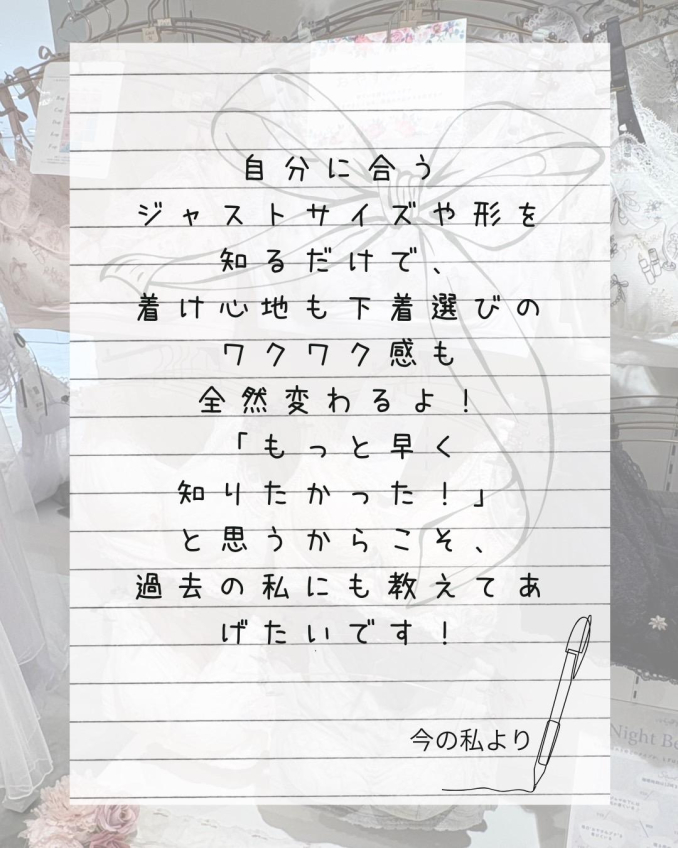 自分に合う
ジャストサイズや形を
知るだけで、
着け心地も下着選びの
ワクワク感も
全然変わるよ！
「もっと早く
知りたかった！」
と思うからこそ、
過去の私にも教えてあ
げたいです！
今の私より
Night Be